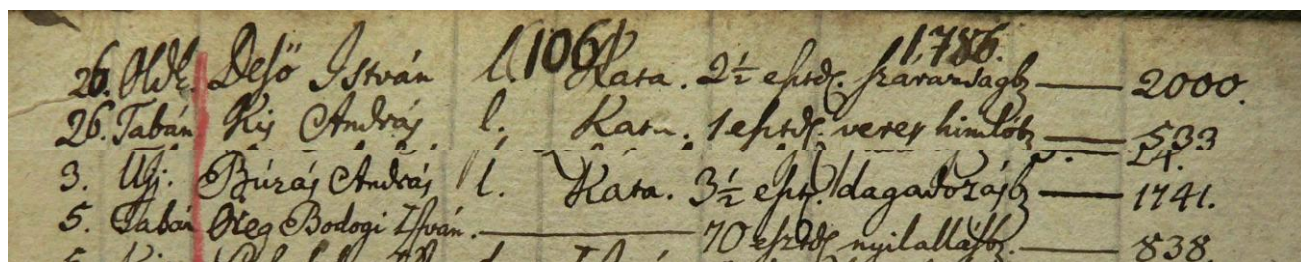 106 1786.
26. Oldl. Deső István l. Kata. 2½ esztd. szárazságb 2000.
26. Tabán Kis András l. Kata. 1 esztd. veres himlőb 533
24.
3. Ujj. Búzás András l. Kata. 3½ eszt. dagadozásb 1741.
5. Tabán Öreg Bodogi István. 70 esztd. nyilallásb. 838.